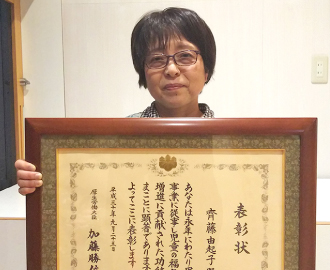 表彰状
齊藤由起子
あなたは永年にわたり児
事業に従事し児童の福
増進に貢献された功績
まことに顕著であります
よってここに表彰します
平成三十年九月二十五日
厚生労働大臣
加藤勝信